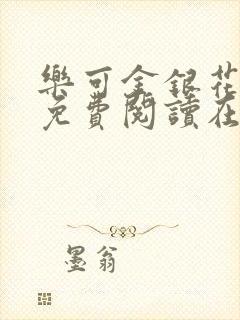 樂可金銀花
免費閱讀在
墨翁